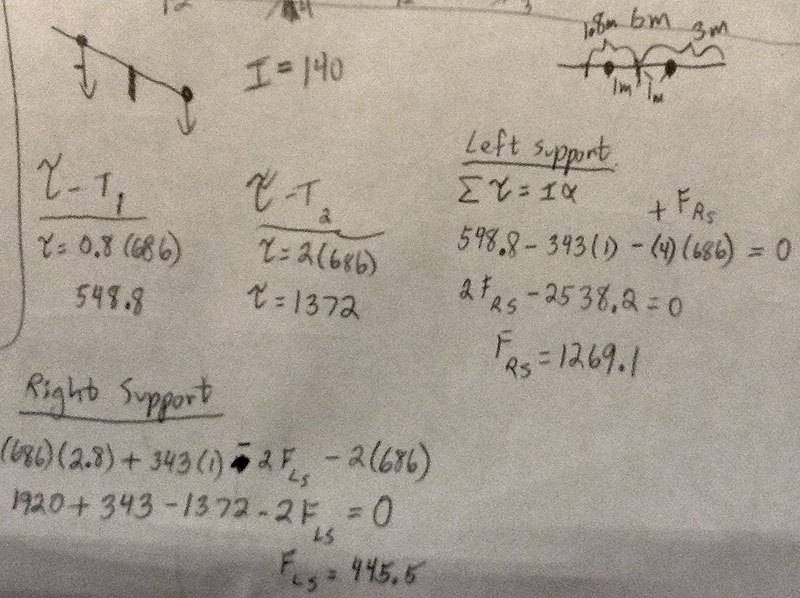 I = 140
1.8m 6m 3m
1m 1m
τ - T₁
τ = 0.8 (686)
548.8
τ - T₂
τ = 2(686)
τ = 1372
Left support
Σ τ = Iα
+ F_RS
548.8 - 343(1) - (4)(686) = 0
2F_RS - 2538.2 = 0
F_RS = 1269.1
Right Support
(686)(2.8) + 343(1) - 2F_LS - 2(686)
1920 + 343 - 1372 - 2F_LS = 0
F_LS = 445.5